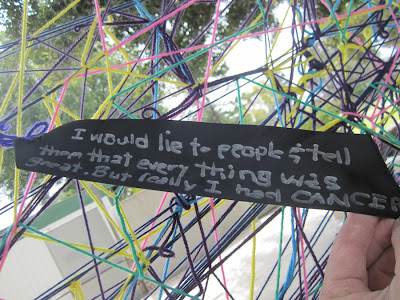 I would lie to people & tell
them that every thing was
great. But really I had CANCER